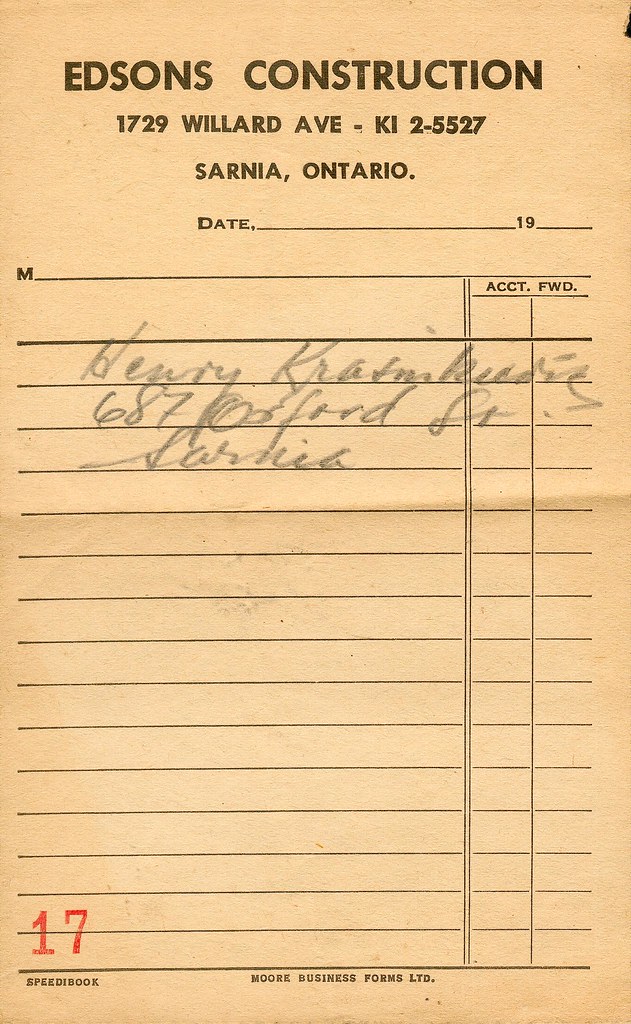 EDSONS CONSTRUCTION
1729 WILLARD AVE - KI 2-5527
SARNIA, ONTARIO.
DATE, 19
M
ACCT. FWD.
Henry
687 Oxford St.
Sarnia
17
SPEEDIBOOK MOORE BUSINESS FORMS LTD.